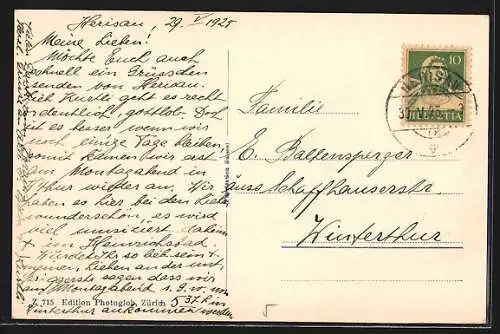 Herisau, 29. V 1925
Meine Lieben!
Möchte Euch auch
schnell ein Grüsschen
senden von Herisau.
geht es recht
ordentlich, gottlob. Doch
ist es besser wenn wir
noch einige Tage bleiben,
somit kämen wir erst
am Montagabend in
W'thur wieder an. Wir
haben es hier bei den Lieben
wunderschön, es wird
viel musiziert daheim
+ im Heinrichsbad.
Würdet Ihr so lieb sein +
meinen Lieben an der
sagen dass wir
am Montagabend s. G. w. um
5 37 h in
Winterthur ankommen werden
Z. 715 Edition Photoglob, Zürich
10
HELVETIA
Familie
E. Baltensperger
äuss. Schaffhauserstr.
Winterthur